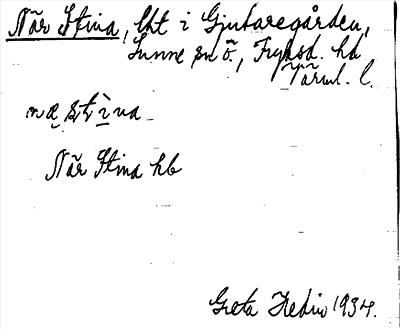 När Stina, lht i Gjutaregården,
Sunne sn ö., Fryksd. hd
Värml. l.
När Stina hb
Greta Hedin 1934.